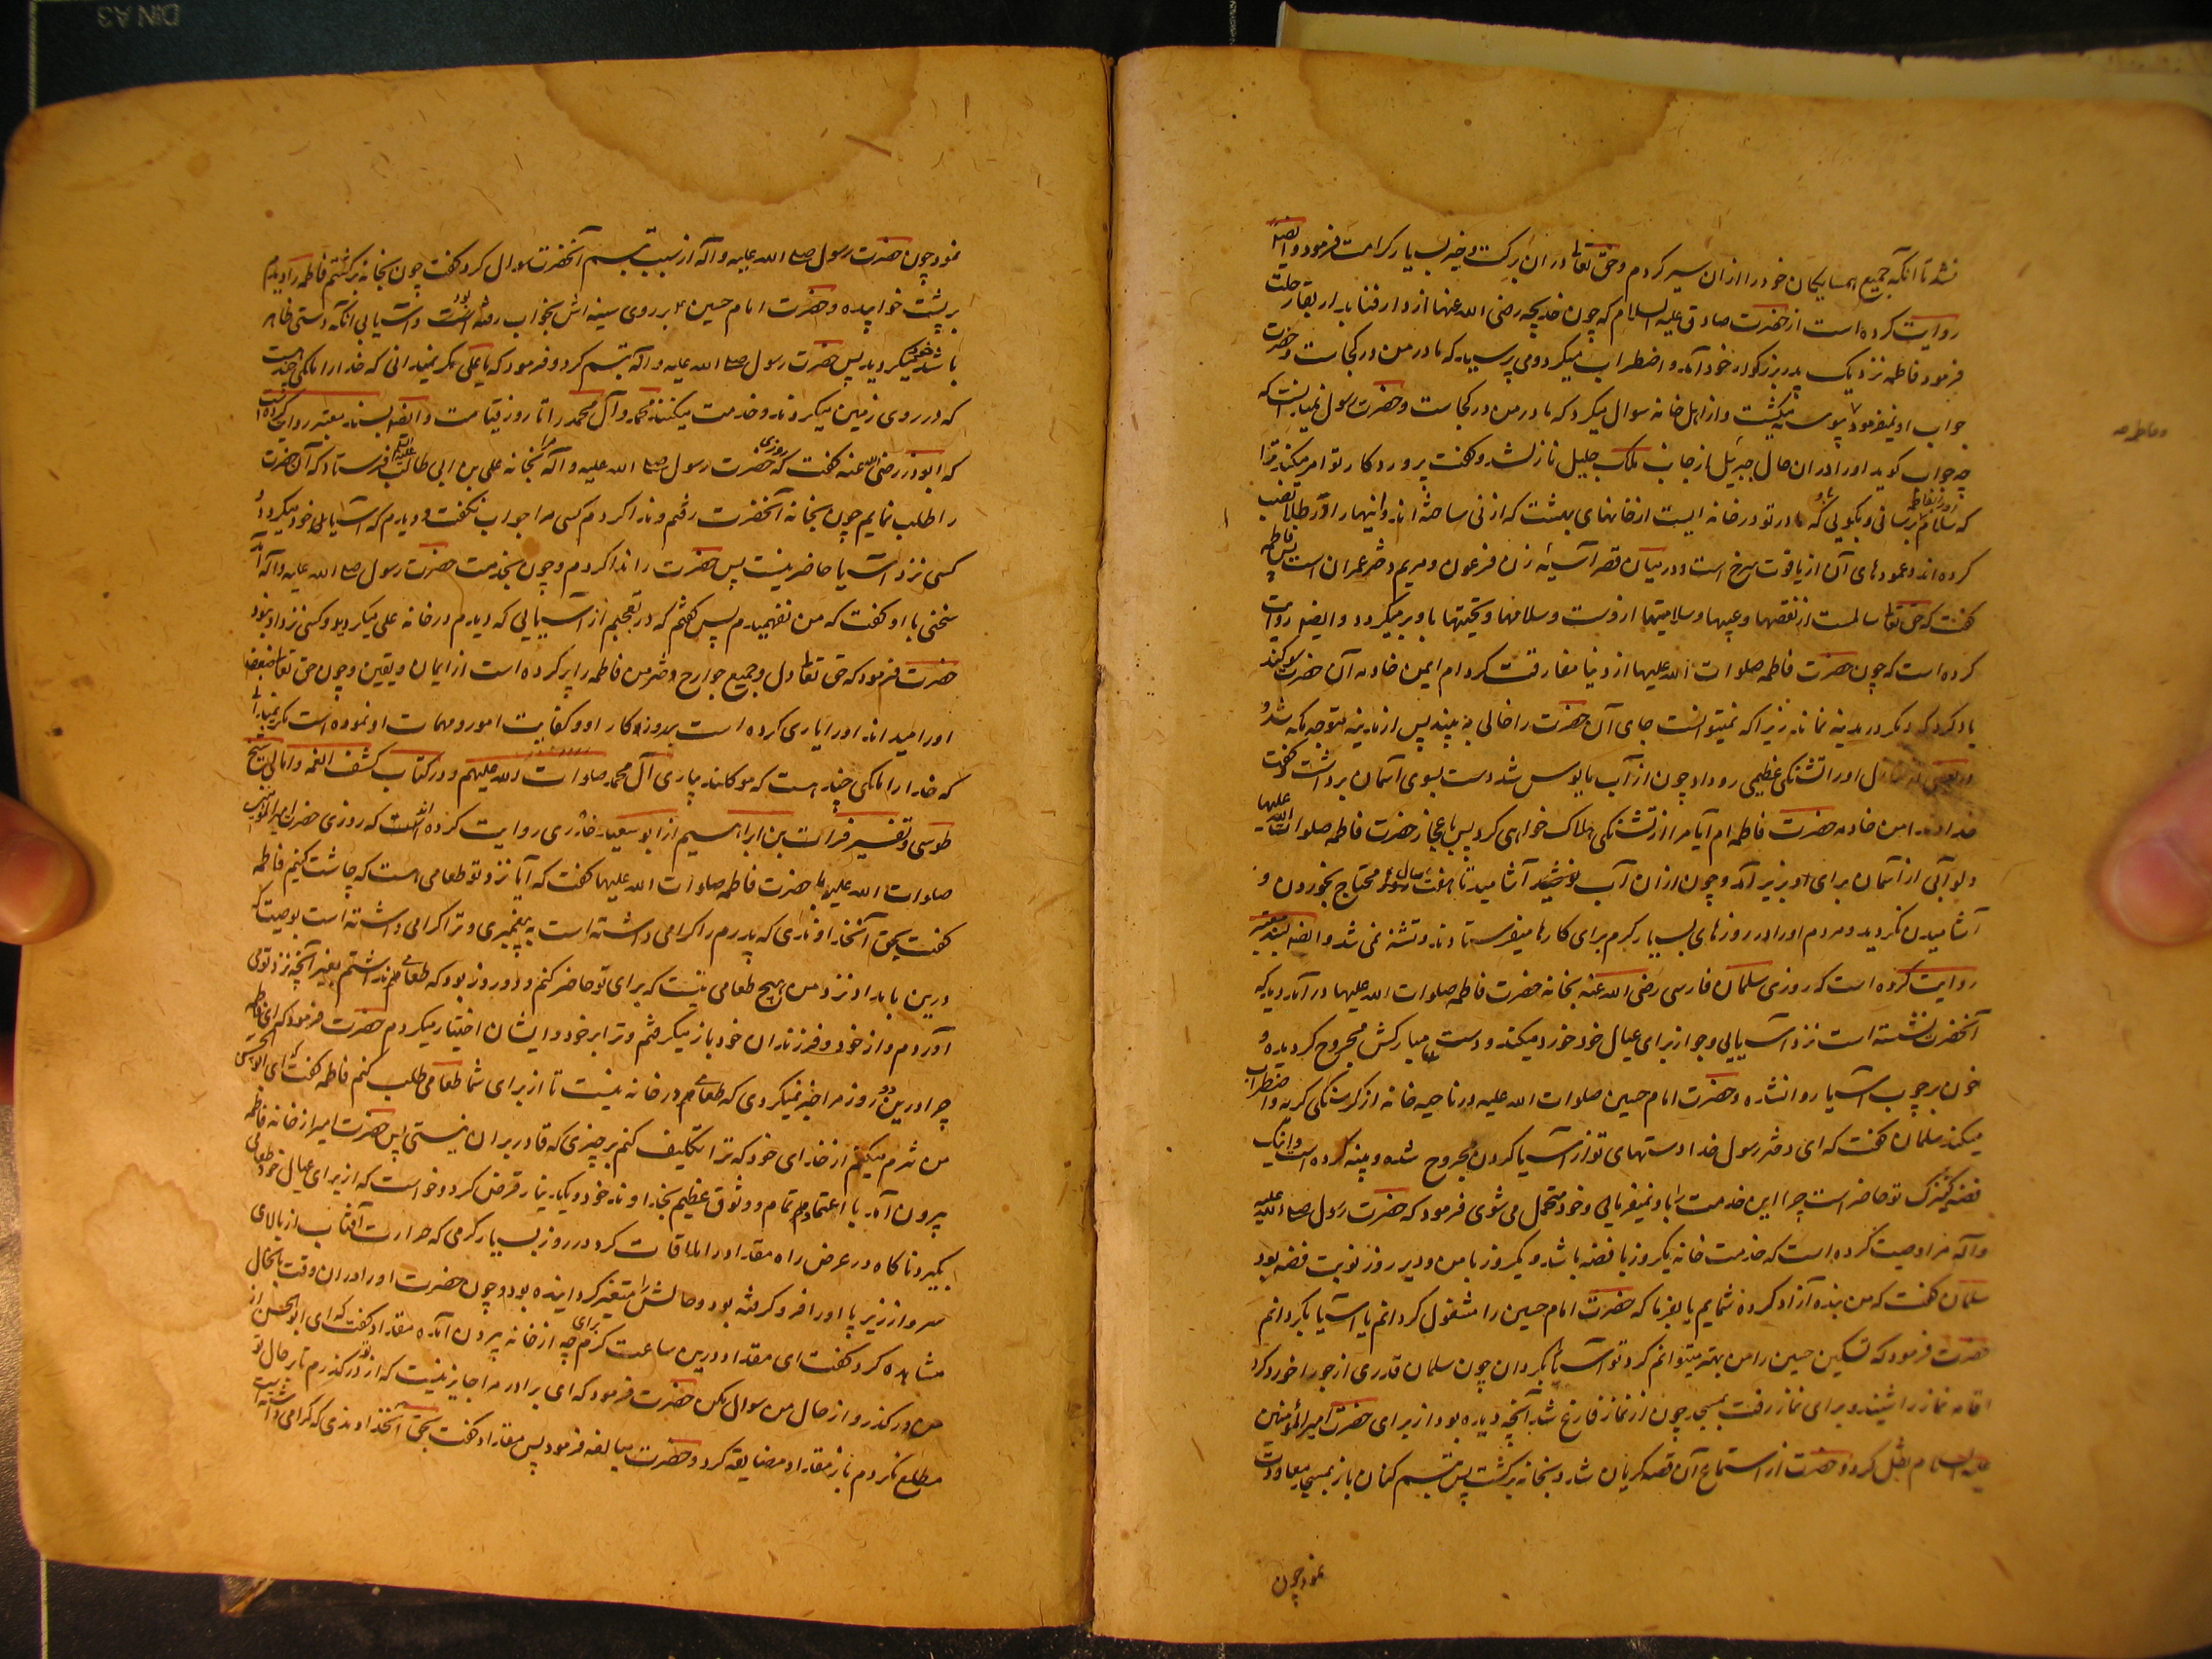 نشد تا آنکه جمیع همسایکان خود را ازان سیر کردم و حق تعالی دران برکت و خیر بسیار کرامت فرمود و ایضا
روایت کرده است از حضرت صادق علیه السلام که چون خدیجه رضی الله عنها از دار فنا بدار بقا رحلت
فرمود فاطمه نزدیک پدر بزرکوار خود آمد و اضطراب میکرد و می پرسید که مادر من در کجاست و حضرت
جواب او نمیفرمود و از اهل خانه سوال میکرد که مادر من در کجاست و حضرت رسول نمیدانست که
چه جواب کوید او را دران حال جبرئیل از جانب ملک جلیل نازل شد و کفت پروردکار تو امر میکند ترا
که سلام برسانی و بکویی که مادر تو در خانه ایست از خانهای بهشت که از نی ساخته اند و آنها را از طلا نصب
کرده اند و عمودهای آن از یاقوت سرخ است و در میان قصر آسیه زن فرعون و مریم دختر عمران است پس فاطمه
کفت که حق تعالی سالمست از نقصها و عیبها و سلامتیها ازوست و سلامها و تحیتها باو بر میکردد و ایضا روایت
کرده است که چون حضرت فاطمه صلوات الله علیها از دنیا مفارقت کرد ام ایمن خادمه آن حضرت سوکند
یاد کرد که دیکر در مدینه نماند زیرا که نمیتوانست جای آن حضرت را خالی به بیند پس از مدینه متوجه مکه شد و
در بعضی از منازل او را تشنکی عظیمی رو داد چون از آب مایوس شد دست بسوی آسمان برداشت و کفت
خداوندا من خادمه حضرت فاطمه ام آیا مرا از تشنکی هلاک خواهی کرد پس باعجاز حضرت فاطمه صلوات الله علیها
دلو آبی از آسمان برای او بزیر آمد و چون ازان آب آشامید تا هفت سال دیکر محتاج بخوردن و
آشامیدن نکردید و مردم او را در روزهای بسیار کرم برای کارها میفرستادند و تشنه نمی شد و ایضا بسند معتبر
روایت کرده است که روزی سلمان فارسی رضی الله عنه بخانه حضرت فاطمه صلوات الله علیها در آمد دید که
آنحضرت نشسته است نزد آسیایی و جو از برای عیال خود خورد میکند و دست مبارکش مجروح کردیده و
خون بر چوب آسیا روان شده و حضرت امام حسین صلوات الله علیه در ناحیه خانه از کرسنکی کریه و اضطراب
میکند سلمان کفت که ای دختر رسول خدا دستهای تو از آسیا کردن مجروح شده و پینه کرده است و اینک
فضه کنیزک تو حاضر است چرا این خدمت را باو نمیفرمایی و خود متحمل می شوی فرمود که حضرت رسول صلی الله علیه
و آله مرا وصیت کرده است که خدمت خانه یکروز با فضه باشد و یکروز با من و دیروز نوبت فضه بود
سلمان کفت که من بنده آزاد کرده شمایم یا بفرما که حضرت امام حسین را مشغول کردانم یا آسیا بکردانم
حضرت فرمود که تسکین حسین را من بهتر میتوانم کرد تو آسیا بکردان چون سلمان قدری از جو را خورد کرد
اقامه نماز را شنید و برای نماز رفت بمسجد چون از نماز فارغ شد آنچه دیده بود از برای حضرت امیر المؤمنین
علیه السلام نقل کرد و حضرت از استماع آن قصه کریان شد و بخانه برکشت پس تبسم کنان باز بمسجد معاودت
نمود چون
نمود چون حضرت رسول صلی الله علیه و آله از سبب تبسم آنحضرت سوال کرد کفت چون بخانه برکشتم فاطمه را دیدم
بر پشت خوابیده و حضرت امام حسین بر روی سینه اش بخواب رفته است و آسیایی آنکه دستی ظاهر
باشد میکردید پس حضرت رسول صلی الله علیه و آله تبسم کرد و فرمود که یا علی مکر نمیدانی که خدا را ملکی چند هست
که در روی زمین میکردند و خدمت میکنند محمد و آل محمد را تا روز قیامت و ایضا بسند معتبر روایت کرده است
که ابوذر رضی الله عنه کفت که روزی حضرت رسول صلی الله علیه و آله مرا بخانه علی بن ابی طالب علیه السلام فرستاد که آن حضرت
را طلب نمایم چون بخانه آنحضرت رفتم و ندا کردم کسی مرا جواب نکفت و دیدم که آسیا خود میکردد و
کسی نزد آسیا حاضر نیست پس حضرت را ندا کردم و چون بخدمت حضرت رسول صلی الله علیه و آله آمد
سخنی باو کفت که من نفهمیدم پس کفتم که در تعجبم از آسیایی که دیدم در خانه علی میکردید و کسی نزد او نبود
حضرت فرمود که حق تعالی دل و جمیع جوارح دختر من فاطمه را پر کرده است از ایمان و یقین و چون حق تعالی ضعف
او را میداند او را یاری کرده است بر روزکار او و کفایت امور و مهمات او نموده است مکر نمیدانی
که خدا را ملکی چند هست که موکلند بیاری آل محمد صلوات الله علیهم و در کتاب کشف الغمه و امالی شیخ
طوسی و تفسیر فرات بن ابراهیم از ابو سعید خدری روایت کرده است که روزی حضرت امیر المؤمنین
صلوات الله علیه با حضرت فاطمه صلوات الله علیها کفت که آیا نزد تو طعامی هست که چاشت کنیم فاطمه
کفت بحق آنخداوندی که پدرم را کرامی داشته است به پیغمبری و ترا کرامی داشته است بوصیت که
درین بامداد نزد من هیچ طعامی نیست که برای تو حاضر کنم و دو روز بود که طعامی نداشتم بغیر آنچه نزد تو می
آوردم و از خود و فرزندان خود باز میکرفتم و ترا بر خود و ایشان اختیار میکردم حضرت فرمود که ای فاطمه
چرا درین دو روز مرا خبر نمیکردی که طعامی در خانه نیست تا از برای شما طعامی طلب کنم فاطمه کفت ای ابو الحسن
من شرم میکنم از خدای خود که ترا تکلیف کنم بر چیزی که قادر بران نیستی پس حضرت امیر از خانه فاطمه
بیرون آمد با اعتماد تمام و وثوق عظیم بخداوند خود و یکدینار قرض کرد و خواست که از برای عیال خود طعامی
بکیرد ناکاه در عرض راه مقداد را ملاقات کرد در روز بسیار کرمی که حرارت آفتاب از بالای
سر و از زیر پا او را فرو کرفته بود و حالش را متغیر کردانیده بود و چون حضرت او را دران وقت بانحال
مشاهده کرد کفت ای مقداد درین ساعت کرم برای چه از خانه بیرون آمده مقداد کفت که ای ابو الحسن از
من در کذر و از حال من سوال مکن حضرت فرمود که ای برادر مرا جایز نیست که از تو در کذرم تا بر حال تو
مطلع نکردم باز مقداد مضایقه کرد و حضرت مبالغه فرمود پس مقداد کفت بحق آنخداوندی که کرامی داشته است